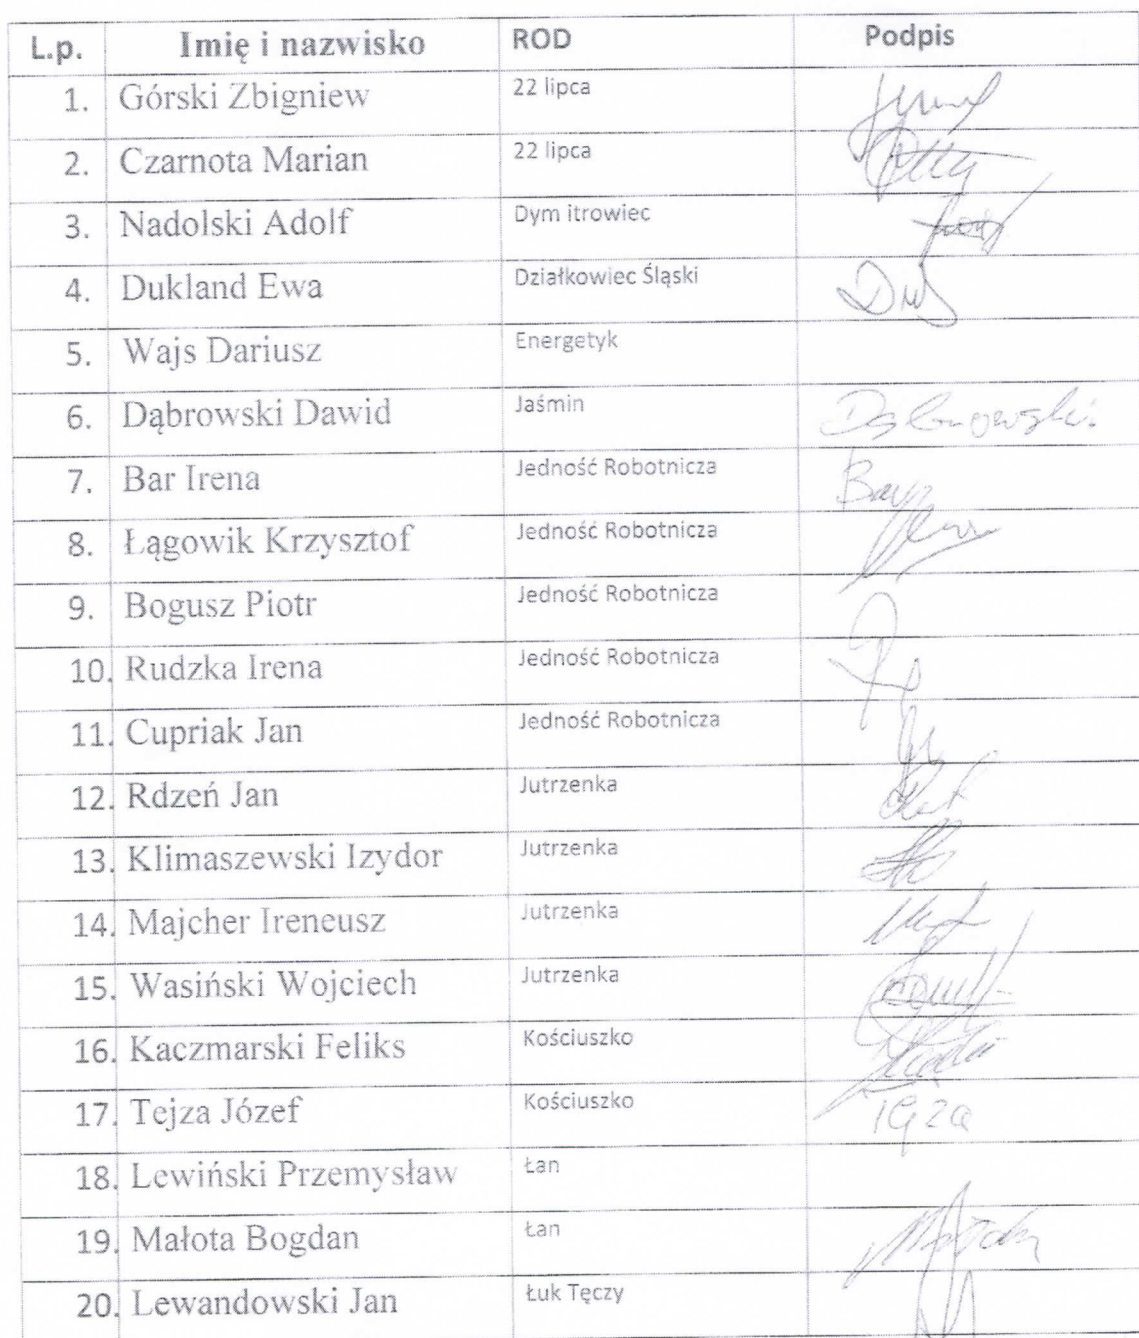 L.p. Imię i nazwisko ROD Podpis
1. Górski Zbigniew 22 lipca
2. Czarnota Marian 22 lipca
3. Nadolski Adolf Dym itrowiec
4. Dukland Ewa Działkowiec Śląski
5. Wajs Dariusz Energetyk
6. Dąbrowski Dawid Jaśmin Dąbrowski
7. Bar Irena Jedność Robotnicza Bar
8. Łągowik Krzysztof Jedność Robotnicza
9. Bogusz Piotr Jedność Robotnicza
10. Rudzka Irena Jedność Robotnicza
11. Cupriak Jan Jedność Robotnicza
12. Rdzeń Jan Jutrzenka
13. Klimaszewski Izydor Jutrzenka
14. Majcher Ireneusz Jutrzenka
15. Wasiński Wojciech Jutrzenka
16. Kaczmarski Feliks Kościuszko
17. Tejza Józef Kościuszko
18. Lewiński Przemysław Łan
19. Małota Bogdan Łan
20. Lewandowski Jan Łuk Tęczy